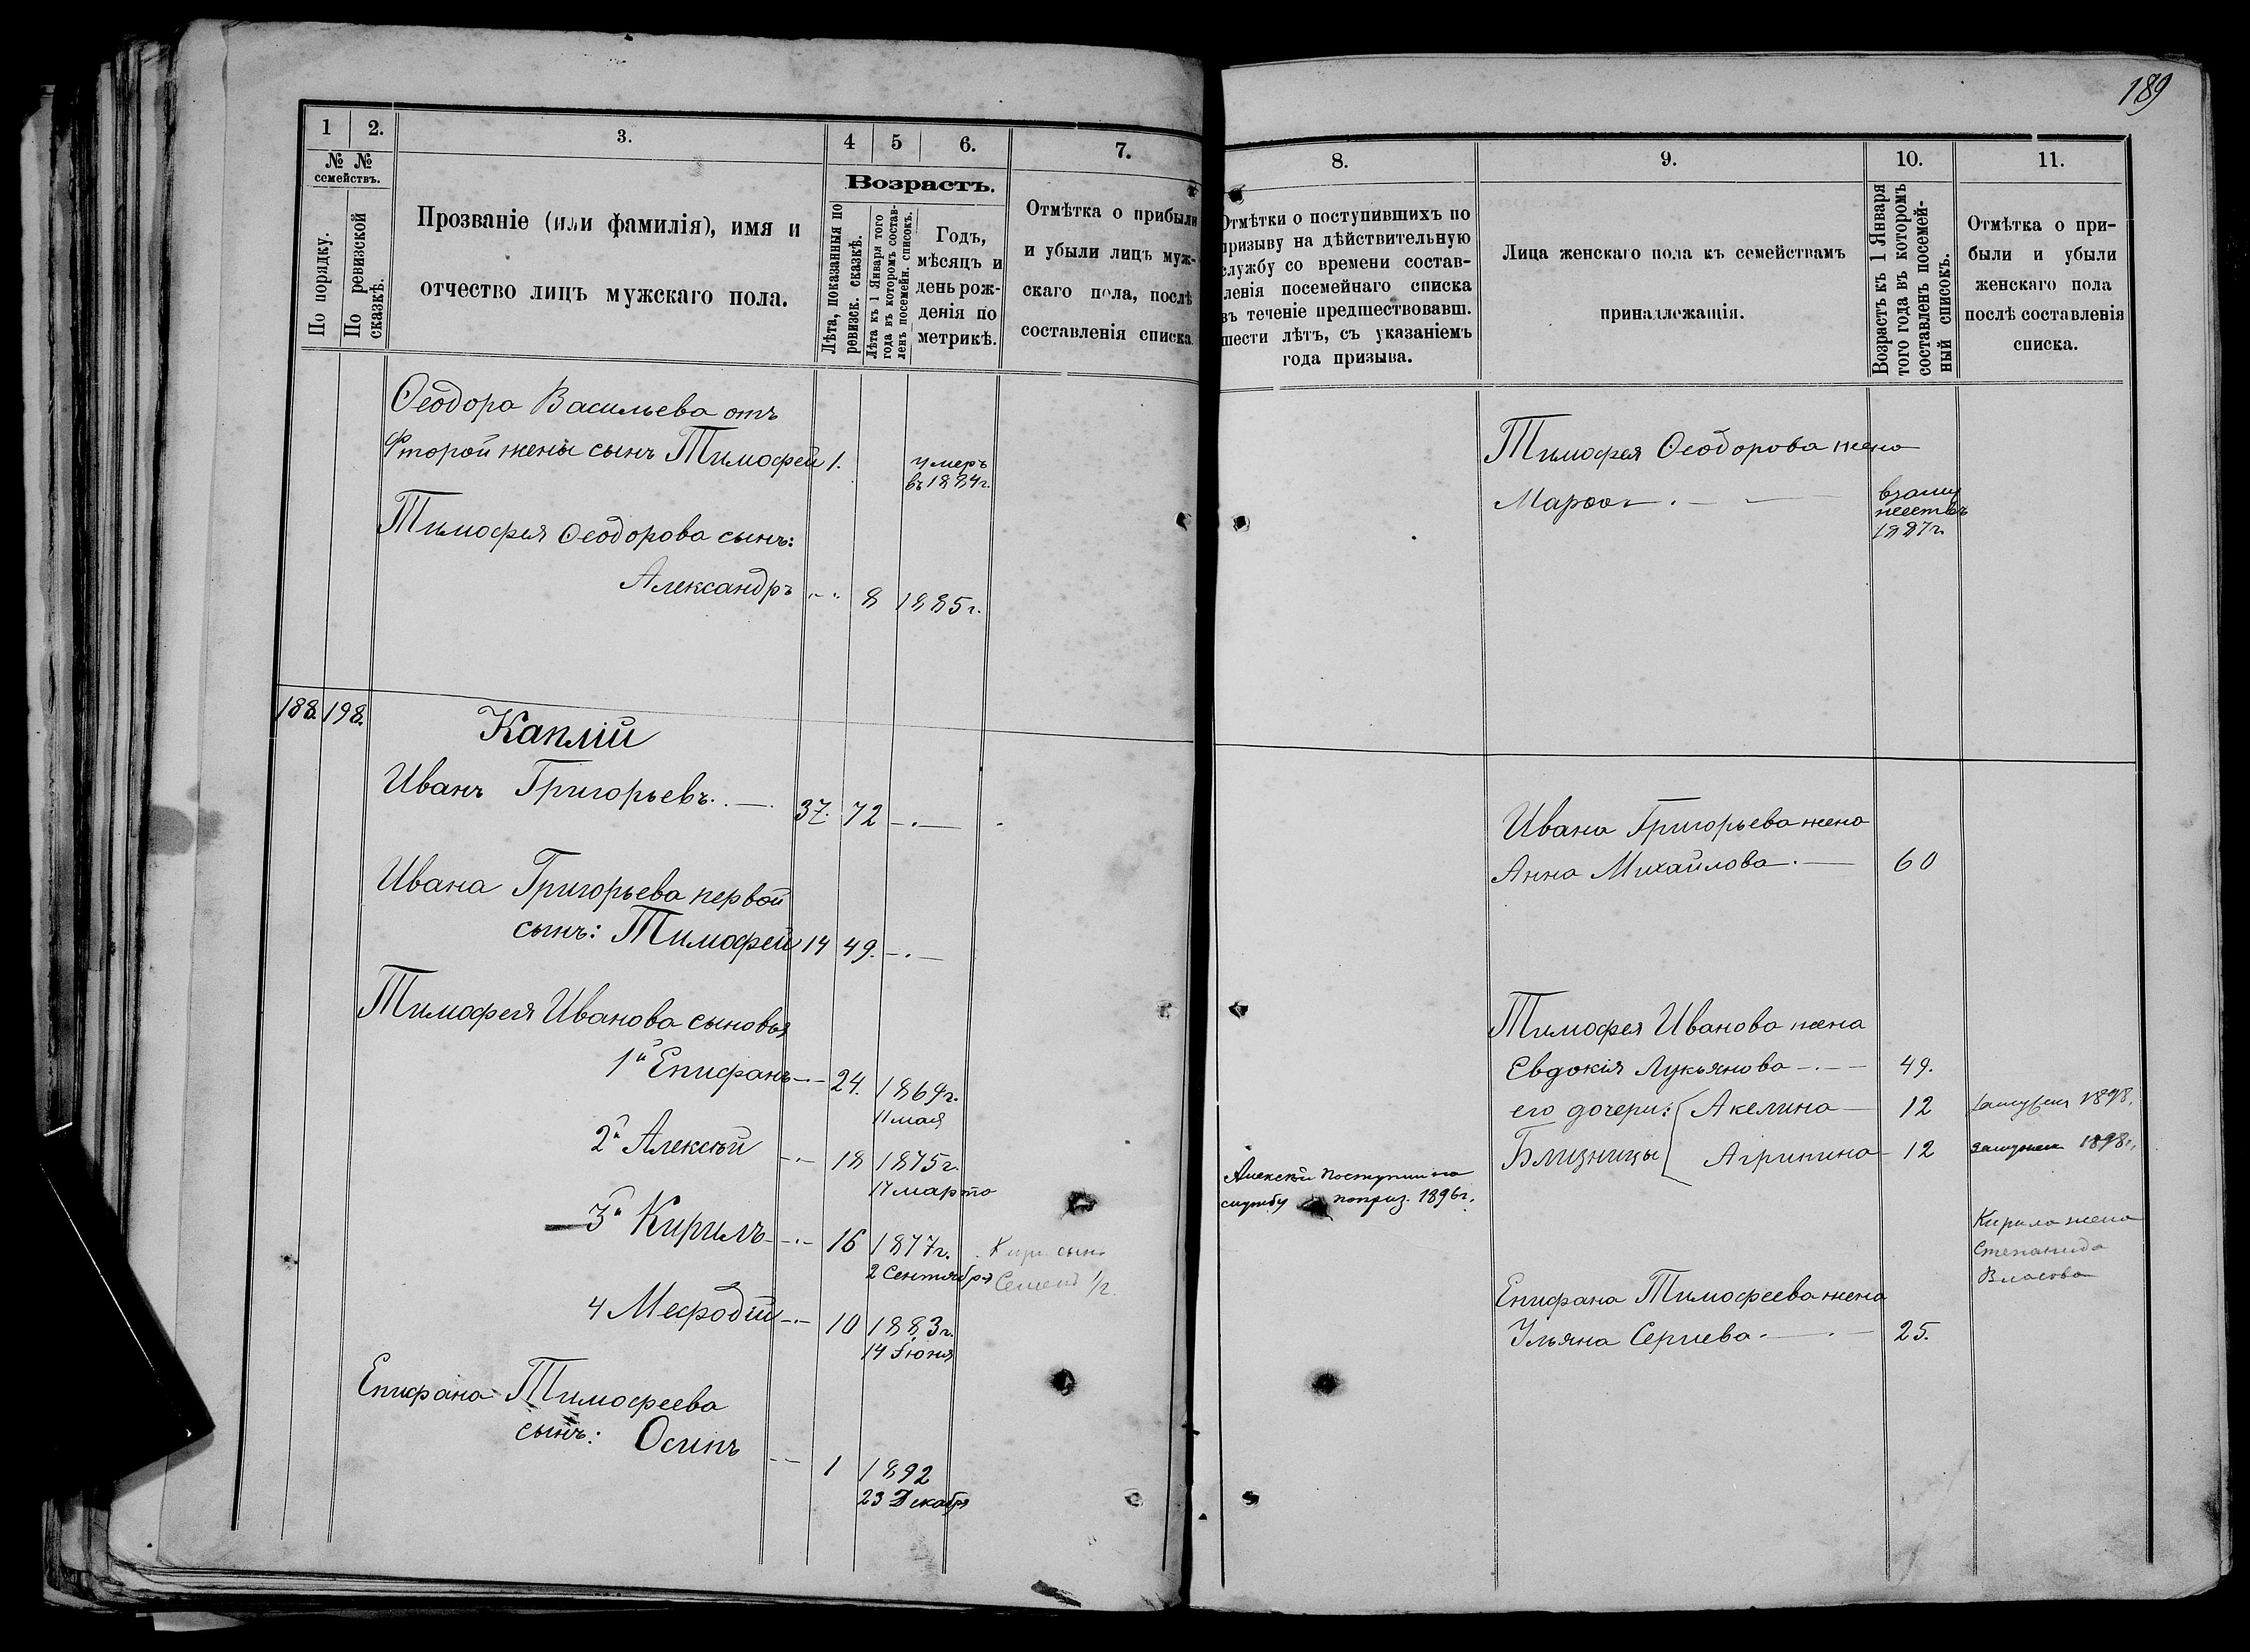 189
1
2.
3.
4
5
6.
7.
№ №
семействъ.
По порядку.
По ревизской
сказкѣ.
Прозваніе (или фамилія), имя и
отчество лицъ мужскаго пола.
Возрастъ.
Лѣта, показанныя по
ревизск. сказкѣ.
Лѣта къ 1 Января того
года въ которомъ состав-
ленъ посемейн. списокъ.
Годъ,
мѣсяцъ и
день рож-
денія по
метрикѣ.
Отмѣтка о прибыли
и убыли лицъ муж-
скаго пола, послѣ
составленія списка.
Ѳеодора Васильева отъ
второй жены сынъ Тимофей 1. умеръ
въ 1884г.
Тимофея Ѳеодорова сынъ:
Александръ 8 1885г.
188. 198. Каплій
Иванъ Григорьевъ. 37. 72
Ивана Григорьева первой
сынъ: Тимофей 14 49.
Тимофея Иванова сыновья
1й Епифанъ 24. 1869г.
11 мая
2й Алексѣй 18 1875г.
17 марта
3й Кирилъ 16 1877г. сынъ
2 Сентября Семенъ 1/2
4 Мефодій 10 1883г.
14 Іюня
Епифана Тимофеева
сынъ: Осипъ 1 1892
23 Декабря
8.
9.
10.
11.
Отмѣтки о поступившихъ по
призыву на дѣйствительную
службу со времени состав-
ленія посемейнаго списка
въ теченіе предшествовавш.
шести лѣтъ, съ указаніемъ
года призыва.
Лица женскаго пола къ семействамъ
принадлежащія.
Возрастъ къ 1 Января
того года въ которомъ
составленъ посемей-
ный списокъ.
Отмѣтка о при-
были и убыли
женскаго пола
послѣ составленія
списка.
Тимофея Ѳеодорова жена
Марѳа взамужествѣ
1887г.
Ивана Григорьева жена
Анна Михайлова 60
Тимофея Иванова жена
Евдокія Лукьянова 49.
его дочери: Акелина 12 замужем 1898.
Близницы Агрипина 12 замужем 1898г.
Алексѣй поступил на
службу по приз. 1896г.
Кирила жена
Степанида
Власова
Епифана Тимофеева жена
Ульяна Сергиева 25.